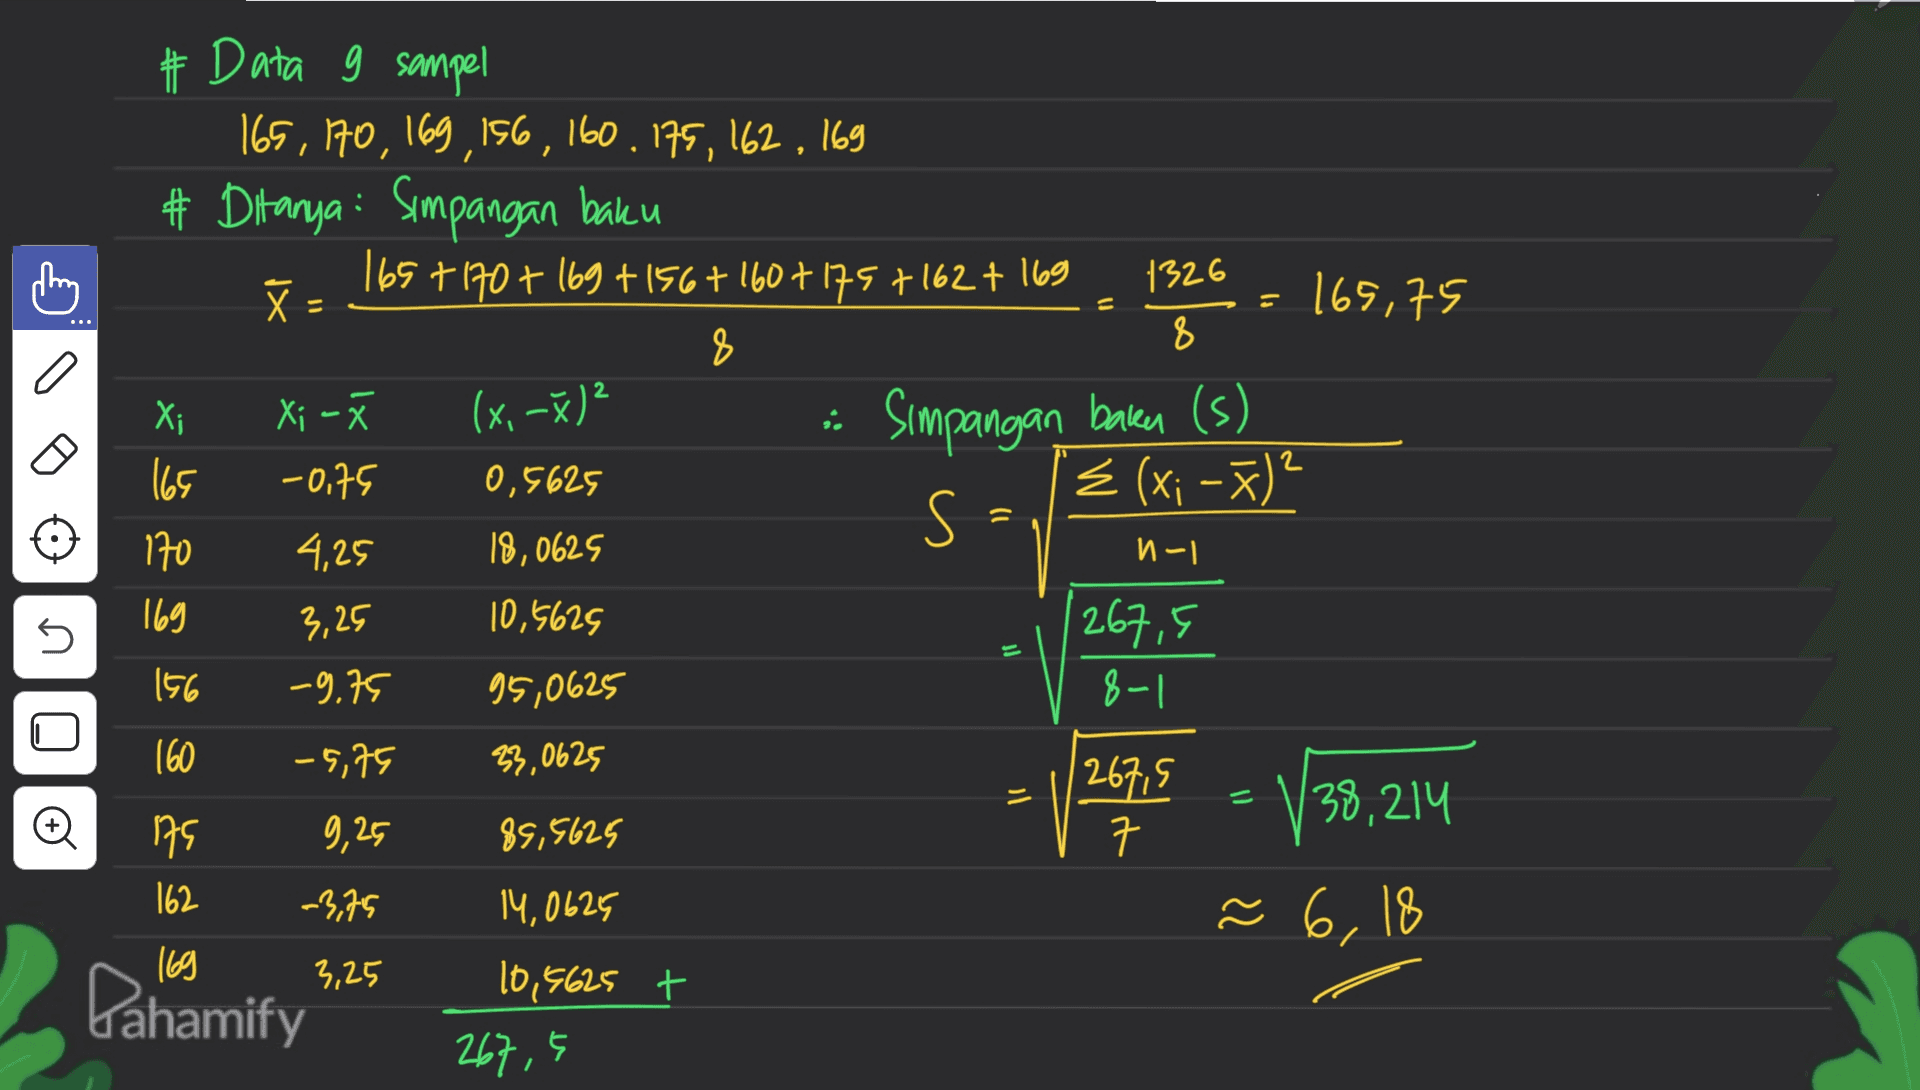 # Data 9 sampel
165, 170, 169, 156, 160. 175, 162, 169
# Ditanya : Simpangan baku
x̄ = (165 + 170 + 169 + 156 + 160 + 175 + 162 + 169) / 8 = 1326 / 8 = 165,75
xi xi - x̄ (xi - x̄)²
165 -0,75 0,5625
170 4,25 18,0625
169 3,25 10,5625
156 -9.75 95,0625
160 -5,75 33,0625
175 9,25 85,5625
162 -3,75 14,0625
169 3,25 10,5625 +
267,5
∴ Simpangan baku (s)
S = √(Σ (xi - x̄)² / n-1)
= √(267,5 / 8-1)
= √(267,5 / 7) = √38,214
≈ 6,18
Pahamify